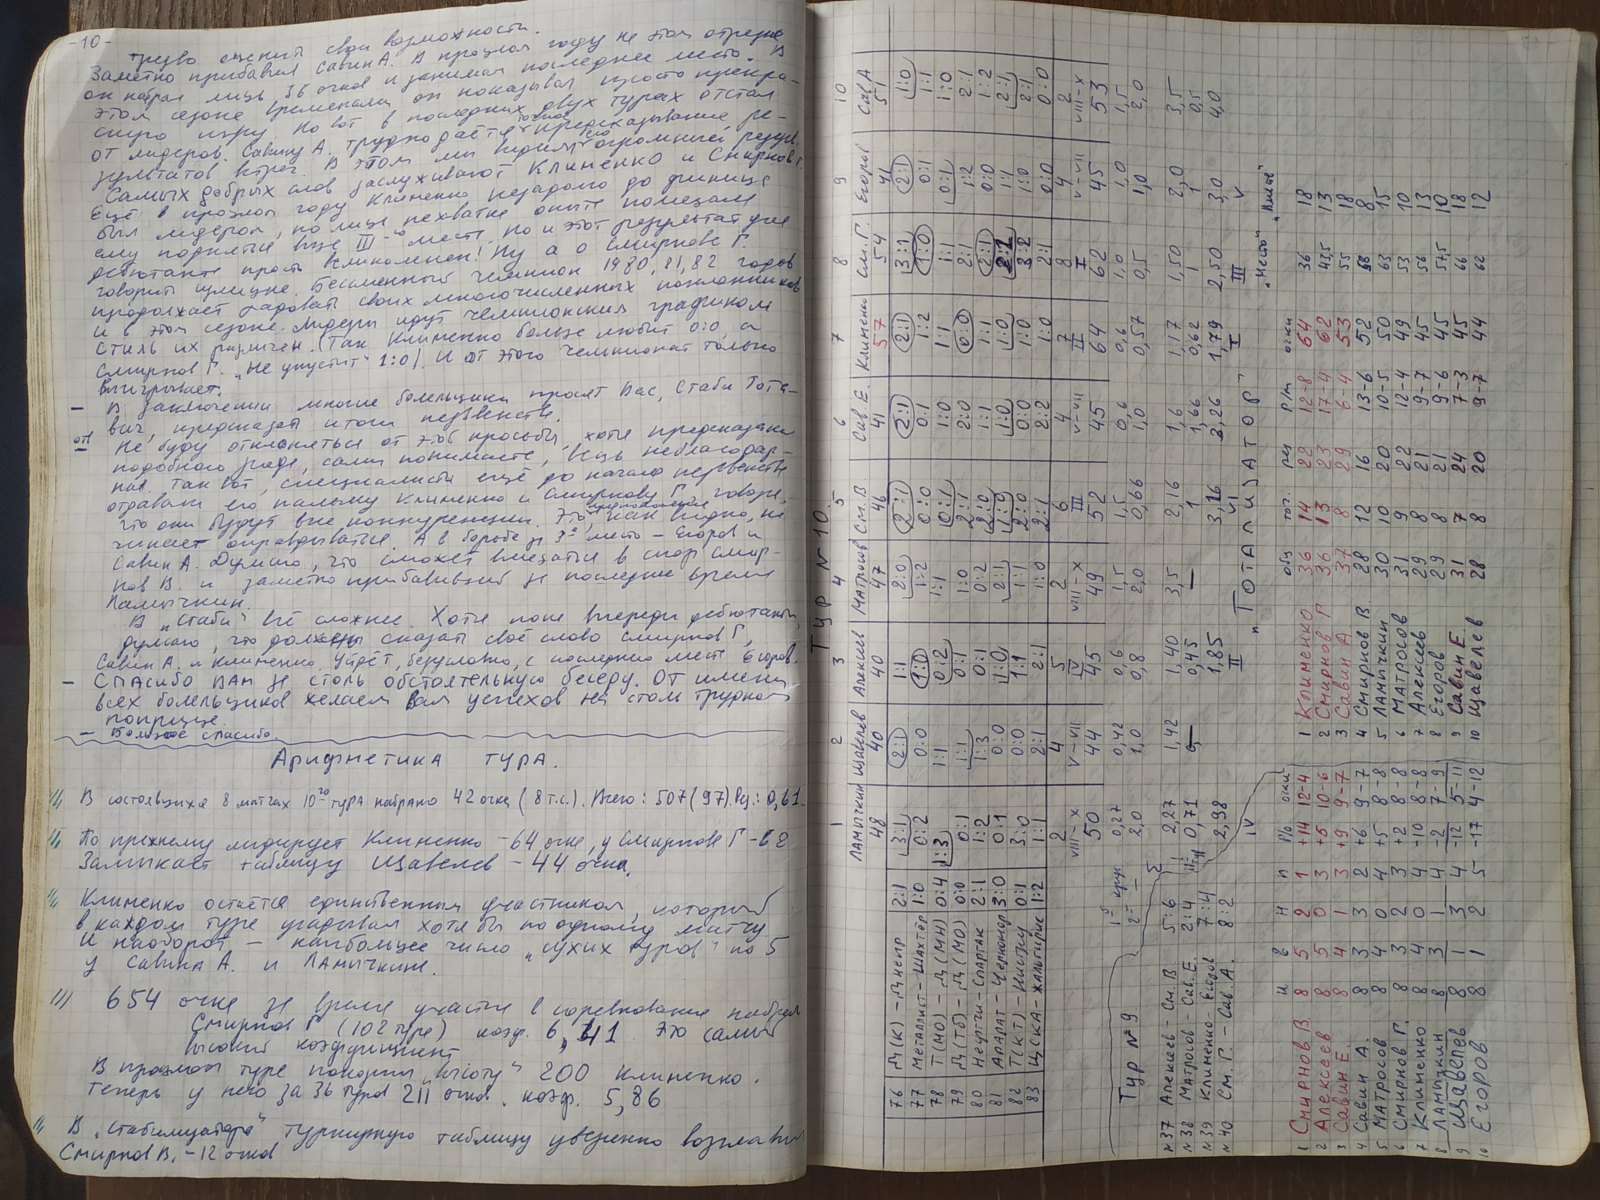 -10-
трезво оценить свои возможности.
Заметно прибавил Савин А. В прошлом году на этом отрезке
он набрал лишь 36 очков и занимал последнее место. В
этом сезоне временами он показывал просто прекра-
сную игру. Но вот в последних двух турах отстал
от лидеров. Савину А. трудно даётся точное предсказывание ре-
зультатов встреч. В этом мы видим его огромный резерв.
Самых добрых слов заслуживают Клименко и Смирнов Г.
Ещё в прошлом году Клименко незадолго до финиша
был лидером, но лишь нехватка опыта помешала
ему подняться выше III-го места. Но и этот результат для
дебютанта просто великолепен! Ну а о Смирнове Г.
говорить излишне. Бессменный чемпион 1980, 81, 82 годов
продолжает радовать своих многочисленных поклонников
и в этом сезоне. Лидеры идут чемпионским графиком
Стиль их различен. (Так Клименко больше любит 0:0, а
Смирнов Г. "не упустит" 1:0). И от этого чемпионат только
выигрывает.
- В заключении многие болельщики просят Вас, Стаби Тота-
вич, предсказать итоги первенства.
- Не буду отклоняться от этой просьбы, хотя предсказания
подобного рода, сами понимаете, вещь неблагодар-
ная. Так вот, специалисты ещё до начала первенства
отдавали его пальму Клименко и Смирнову Г., говоря,
что они будут вне конкуренции. Это предположение, как видно, на-
чинает оправдываться. А в борьбе за 3е место - Егоров и
Савин А. Думаю, что сможет вмешаться в спор Смир-
нов В. и заметно прибавивший за последнее время
Лампычкин.
В "Стаби" всё сложнее. Хотя пока впереди дебютанты,
думаю, что должны сказать своё слово Смирнов Г.,
Савин А. и Клименко. Уйдёт, безусловно, с последнего места Егоров.
- Спасибо вам за столь обстоятельную беседу. От имени
всех болельщиков желаем Вам успехов на столь трудном
поприще.
- Большое спасибо.
Арифметика тура.
В состоявшихся 8 матчах 10го тура набрано 42 очка (8 т.с.). Всего: 507 (97). Рез.: 0,61
По прежнему лидирует Клименко - 64 очка, у Смирнова Г - 62
Замыкает таблицу Щавелев - 44 очка.
Клименко остаётся единственным участником, который
в каждом туре угадывал хотя бы по одному матчу.
И наоборот - наибольшее число "сухих туров" по 5
у Савина А. и Лампычкина.
654 очка за время участия в соревнованиях набрал
Смирнов Г (102 тура) коэф. 6,41 Это самый
высокий коэффициент
В прошлом туре покорил "высоту" 200 Клименко.
Теперь у него за 36 туров 211 очков. коэф. 5,86
В "Стабилизаторе" турнирную таблицу уверенно возглавил
Смирнов В. - 12 очков
Тур №10.
1 2 3 4 5 6 7 8 9 10
Лампычкин Щавелев Алексеев Матросов См. В Сав Е. Клименко См. Г. Егоров Сав А
48 40 40 47 46 41 57 54 41 51
76 Д(К) - Днепр 2:1 3:1 2:1 1:1 2:0 2:1 2:1 2:1 3:1 2:1 1:0
77 Металлист - Шахтёр 1:0 0:2 0:0 1:0 1:2 0:0 0:1 1:2 1:0 0:1 1:1
78 Т(МО) - Д(МН) 0:4 1:3 1:1 0:2 1:1 0:1 1:0 1:1 1:1 0:1 1:0
79 Д(Тб) - Д(МО) 0:0 0:1 1:1 0:1 1:0 2:1 2:0 0:0 2:1 1:2 2:1
80 Нефтчи - Спартак 2:1 1:2 1:3 0:1 0:2 2:0 1:1 1:1 2:1 0:0 1:2
81 Арарат - Черномор 3:0 0:1 0:0 1:0 2:1 1:0 1:0 1:0 2:1 1:1 2:1
82 Т(КТ) - Нистру 0:1 3:0 0:0 1:1 1:1 2:0 0:0 1:0 3:2 1:0 2:1
83 ЦСКА - Жальгирис 1:2 1:1 2:1 2:1 1:0 2:1 2:2 1:0 2:1 0:0 0:0
2 4 5 2 6 4 7 8 4 2
VIII-X V-VII IV VIII-X III V-VII II I V-VII VIII-X
50 44 45 49 52 45 64 62 45 53
1й круг 0,27 0,42 0,6 1,5 1,5 0,6 0,6 1,0 1,0 1,5
2й 2,0 1,0 0,8 2,0 0,66 1,0 0,57 0,5 1,0 2,0
Тур №9
№37 Алексеев - См. В 5:6
№38 Матросов - Сав. Е. 2:4
№39 Клименко - Егоров 7:4
№40 См. Г. - Сав. А. 8:2
2,27 1,42 1,40 3,5 2,16 1,6 1,17 1,50 2,0 3,5
0,71 0,45 - 1 1,66 0,62 1 1 0,5
2,98 1,85 3,16 3,26 1,79 2,50 3,0 4,0
IV II VI I III V
И В Н П Р/о очки
1 Смирнов В. 8 5 2 1 +14 12-4
2 Алексеев 8 5 0 3 +5 10-6
3 Савин Е 8 4 1 3 +9 9-7
4 Савин А. 8 3 3 2 +6 9-7
5 Матросов 8 4 0 4 +5 8-8
6 Смирнов Г. 8 3 2 3 +2 8-8
7 Клименко 8 4 0 4 -10 8-8
8 Лампычкин 8 3 1 4 -2 7-9
9 Щавелев 8 1 3 4 -12 5-11
10 Егоров 8 1 2 5 -17 4-12
"Тотализатор"
общ тот. рез р/м очки "Место" "Липа"
1 Клименко 36 14 22 12-8 64 36 18
2 Смирнов Г 36 13 23 17-4 62 45,5 13
3 Савин А 37 8 29 6-4 53 55 18
4 Смирнов В 28 12 16 13-6 52 56 8
5 Лампычкин 30 10 20 10-5 50 63 15
6 Матросов 31 9 22 12-4 49 53 10
7 Алексеев 29 8 21 9-7 45 56 13
8 Егоров 29 8 21 9-6 45 57,5 10
9 Савин Е. 31 7 24 7-3 45 66 18
10 Щавелев 28 8 20 9-7 44 62 12